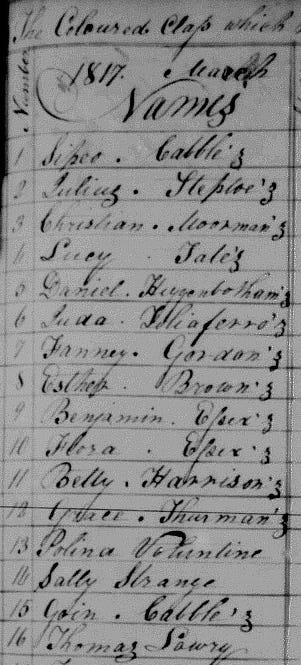 The Coloured Class which
Number
1817. March
Names
1 Sisco. Cabble'z
2 Juliuz. Steptoe'z
3 Christian. Moorman'z
4 Lucy. Tate'z
5 Daniel. Hugenbotham'z
6 Juda. Toliaferro'z
7 Fanney. Gordon'z
8 Esther. Brown'z
9 Benjamin. Essex'z
10 Flora. Essex'z
11 Betty. Harrison'z
12 Grace. Thurman'z
13 Polina Voluntine
14 Sally Strange
15 Cabble'z
16 Thomaz Lowry